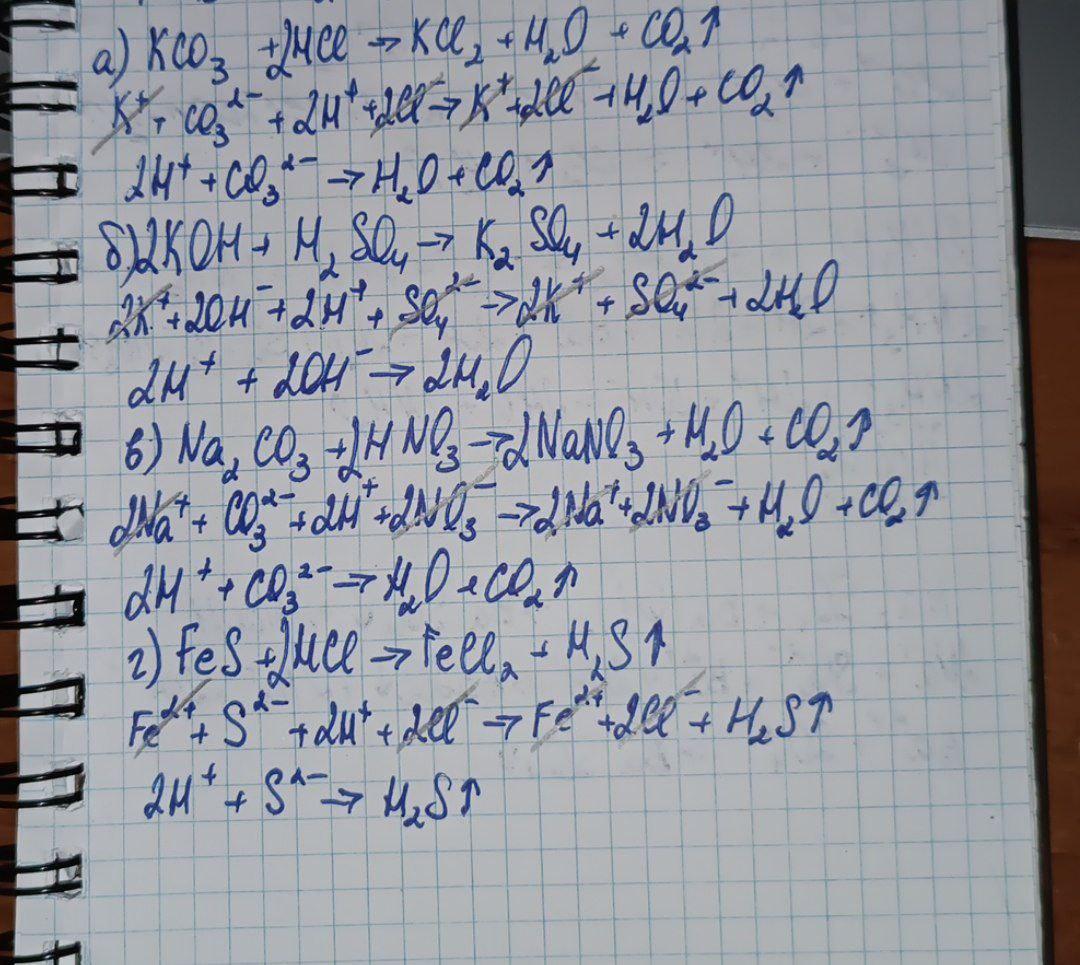 а) KCO₃ + 2HCl → KCl₂ + H₂O + CO₂↑
K⁺ + CO₃²⁻ + 2H⁺ + 2Cl⁻ → K⁺ + 2Cl⁻ + H₂O + CO₂↑
2H⁺ + CO₃²⁻ → H₂O + CO₂↑
б) 2KOH + H₂SO₄ → K₂SO₄ + 2H₂O
2K⁺ + 2OH⁻ + 2H⁺ + SO₄²⁻ → 2K⁺ + SO₄²⁻ + 2H₂O
2H⁺ + 2OH⁻ → 2H₂O
в) Na₂CO₃ + 2HNO₃ → 2NaNO₃ + H₂O + CO₂↑
2Na⁺ + CO₃²⁻ + 2H⁺ + 2NO₃⁻ → 2Na⁺ + 2NO₃⁻ + H₂O + CO₂↑
2H⁺ + CO₃²⁻ → H₂O + CO₂↑
г) FeS + 2HCl → FeCl₂ + H₂S↑
Fe²⁺ + S²⁻ + 2H⁺ + 2Cl⁻ → Fe²⁺ + 2Cl⁻ + H₂S↑
2H⁺ + S²⁻ → H₂S↑